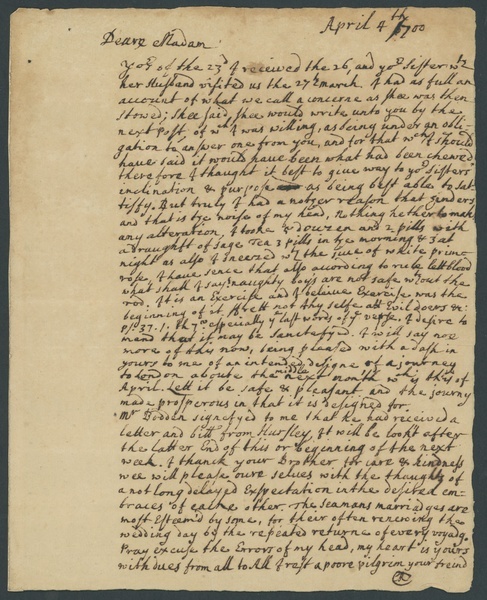 April 4th 1700
Deare Madam
yor of the 23d I received the 26, and yor Sister wth
her Husband visited us the 27th march. I had as full an
account of what we call a concerne as shee was then
stowed; Shee said, shee would write unto you by that
next Post, of wch I was willing, as being under an obli-
gation to answer one from you, and for that wch I should
have said it would have been what had been chewed
therefore I thought it best to give way to yor Sisters
inclination & purpose as being best able to sat-
tisfy. But truly I had another reason that hinders
and that is the noise of my head, nothing hetherto makes
any alteration, I tooke a douzen and 2 pills with
a draught of sage Tea 3 pills in the morning & 3 at
night as also I sneezed wth the juce of white prim-
rose, I have sence that also according to rule lett blood
what shall I say, naughty boys are not safe wthout the
rod. It is an Exercise and I beleive Exercise was the
beginning of it. Frett not thy selfe att Evil doers &c
ps: 37. 1. the 7th especially ye last words of ye verse. I desire to
mend that it may be sanctefyed. I will say noe
more of this now, being pleased with a dash in
yours to me of an intended designe of a journey
to London about the middle next month wch is this of
April. Lett it be safe & pleasant and the journy
made prosperous in that it is designed for.
Mr Dodden signefyed to me that he had received a
letter and bill from Hursley, it will be lookt after
the latter End of this or beginning of the next
week. I thanck your Brother for care & kindness
wee will please oure selves with the thoughts of
a not long delayed Expectation in the desired em-
braces of each other. The seamans marriadges are
most Esteem'd by some, for their often renewing the
wedding day by the repeated returne of every voyadg.
Pray excuse the Errors of my head, my heart is yours
with dues from all to All I rest a poore pilgrim your freind